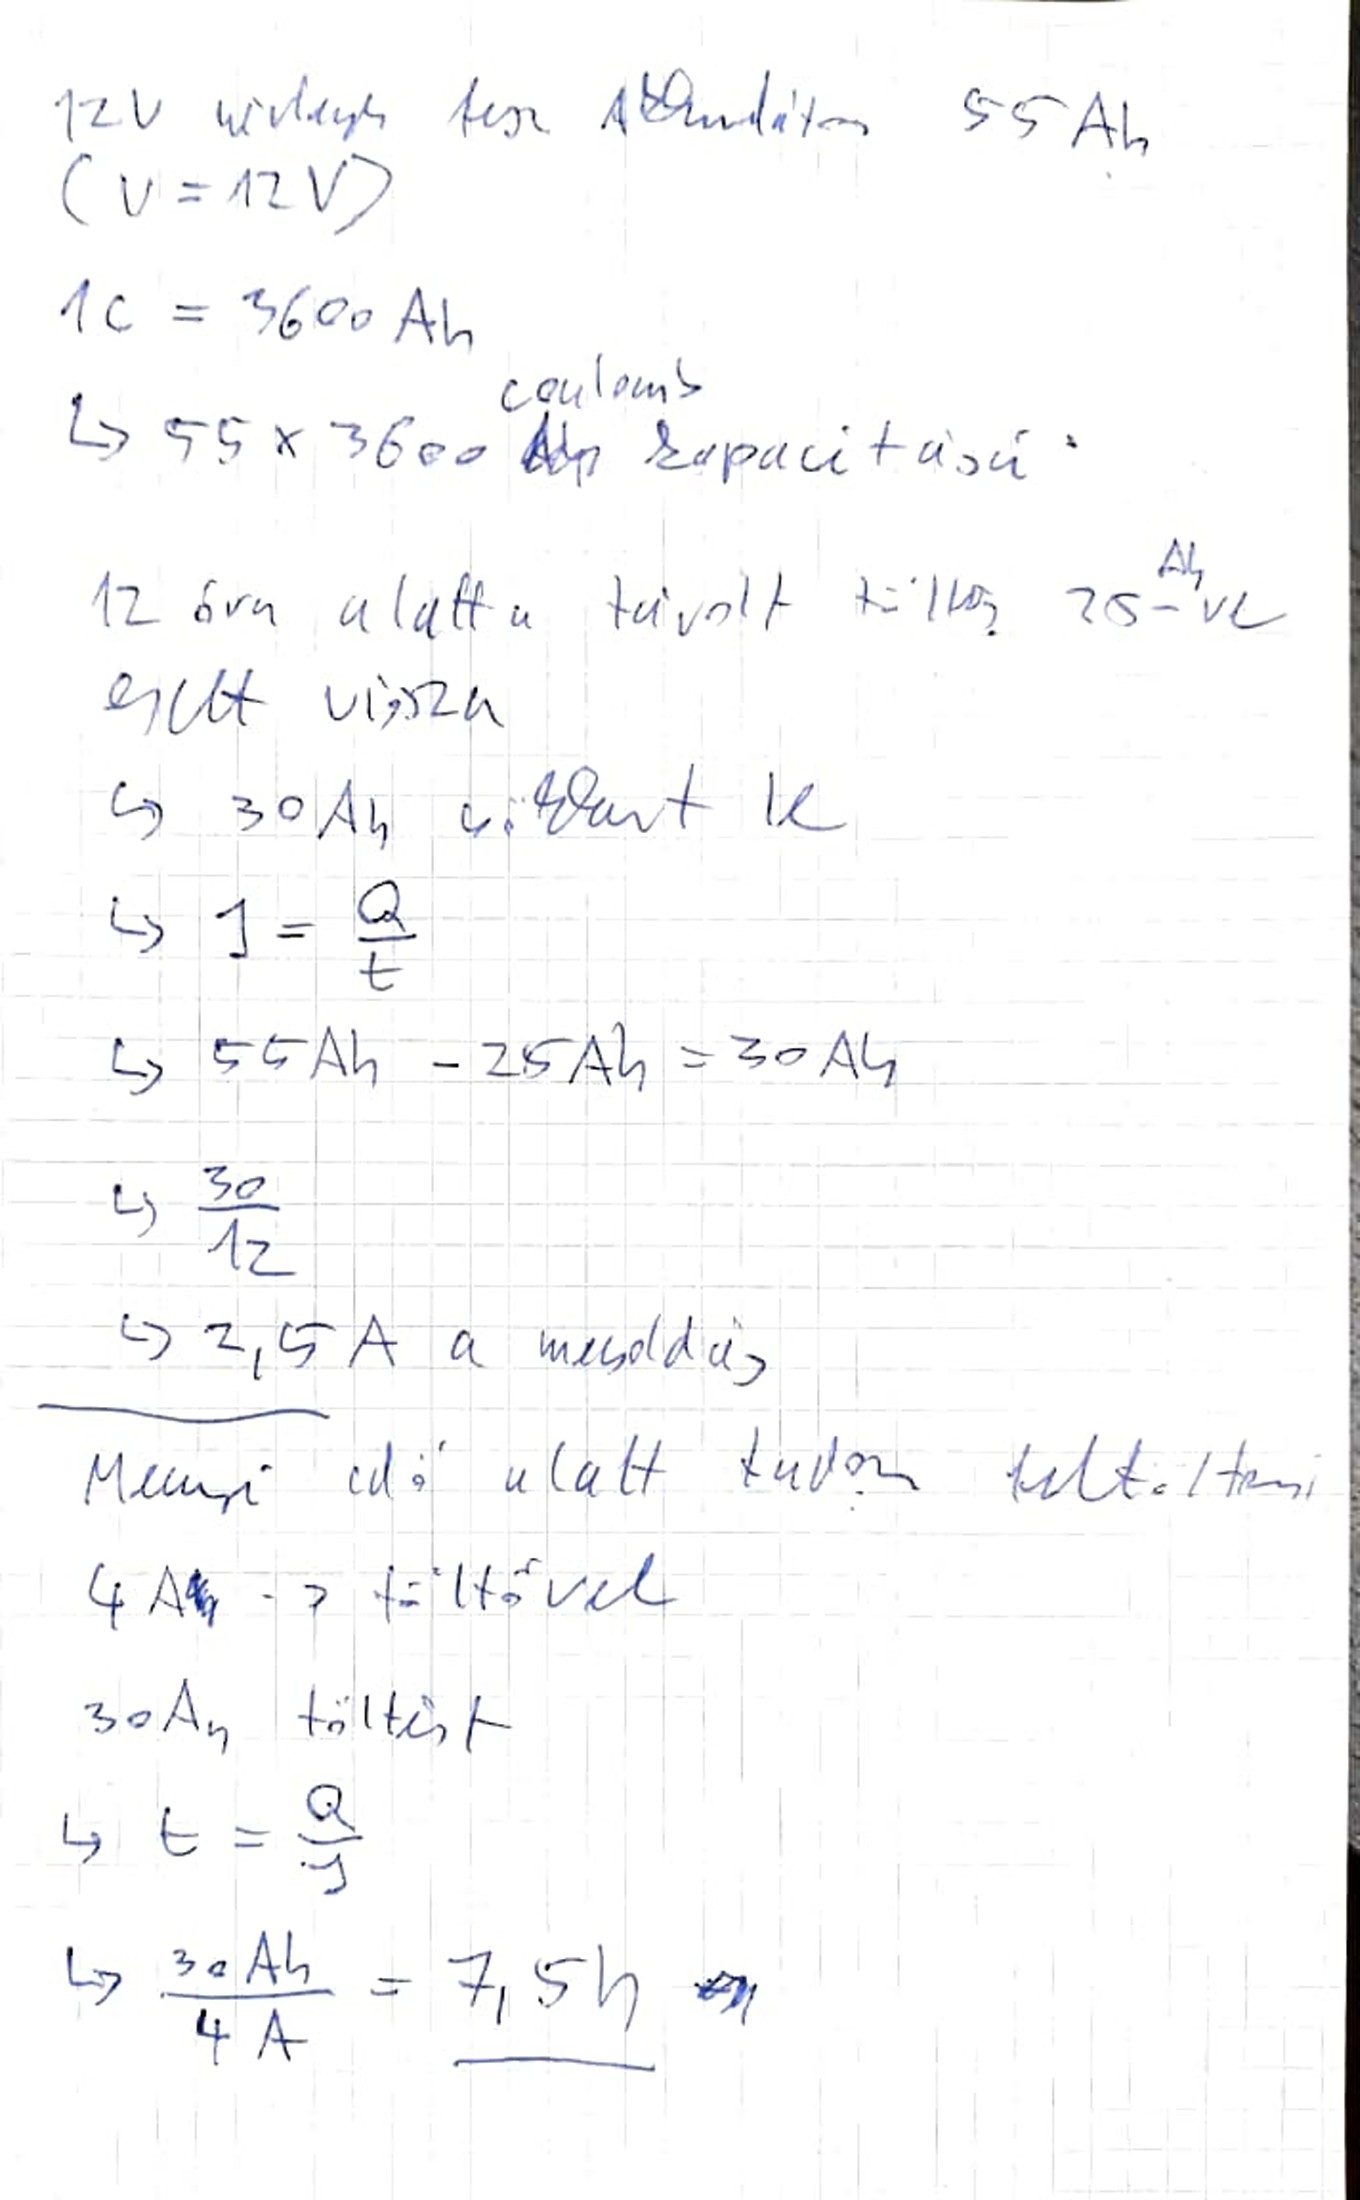 12V lesz 55 Ah
(U = 12 V)
1C = 3600 Ah
coulomb
↳ 55 x 3600 kapacitású
12 óra alatt a távolt töltés 25 Ah-ve
esett vissza
↳ 30 Ah le
↳ I = Q/t
↳ 55 Ah - 25 Ah = 30 Ah
↳ 30/12
↳ 2,5 A a megoldás
Mennyi idő alatt tudom feltölteni
4 A -> töltővel
30 Ah töltést
↳ t = Q/I
↳ 30 Ah/4 A = 7,5 h